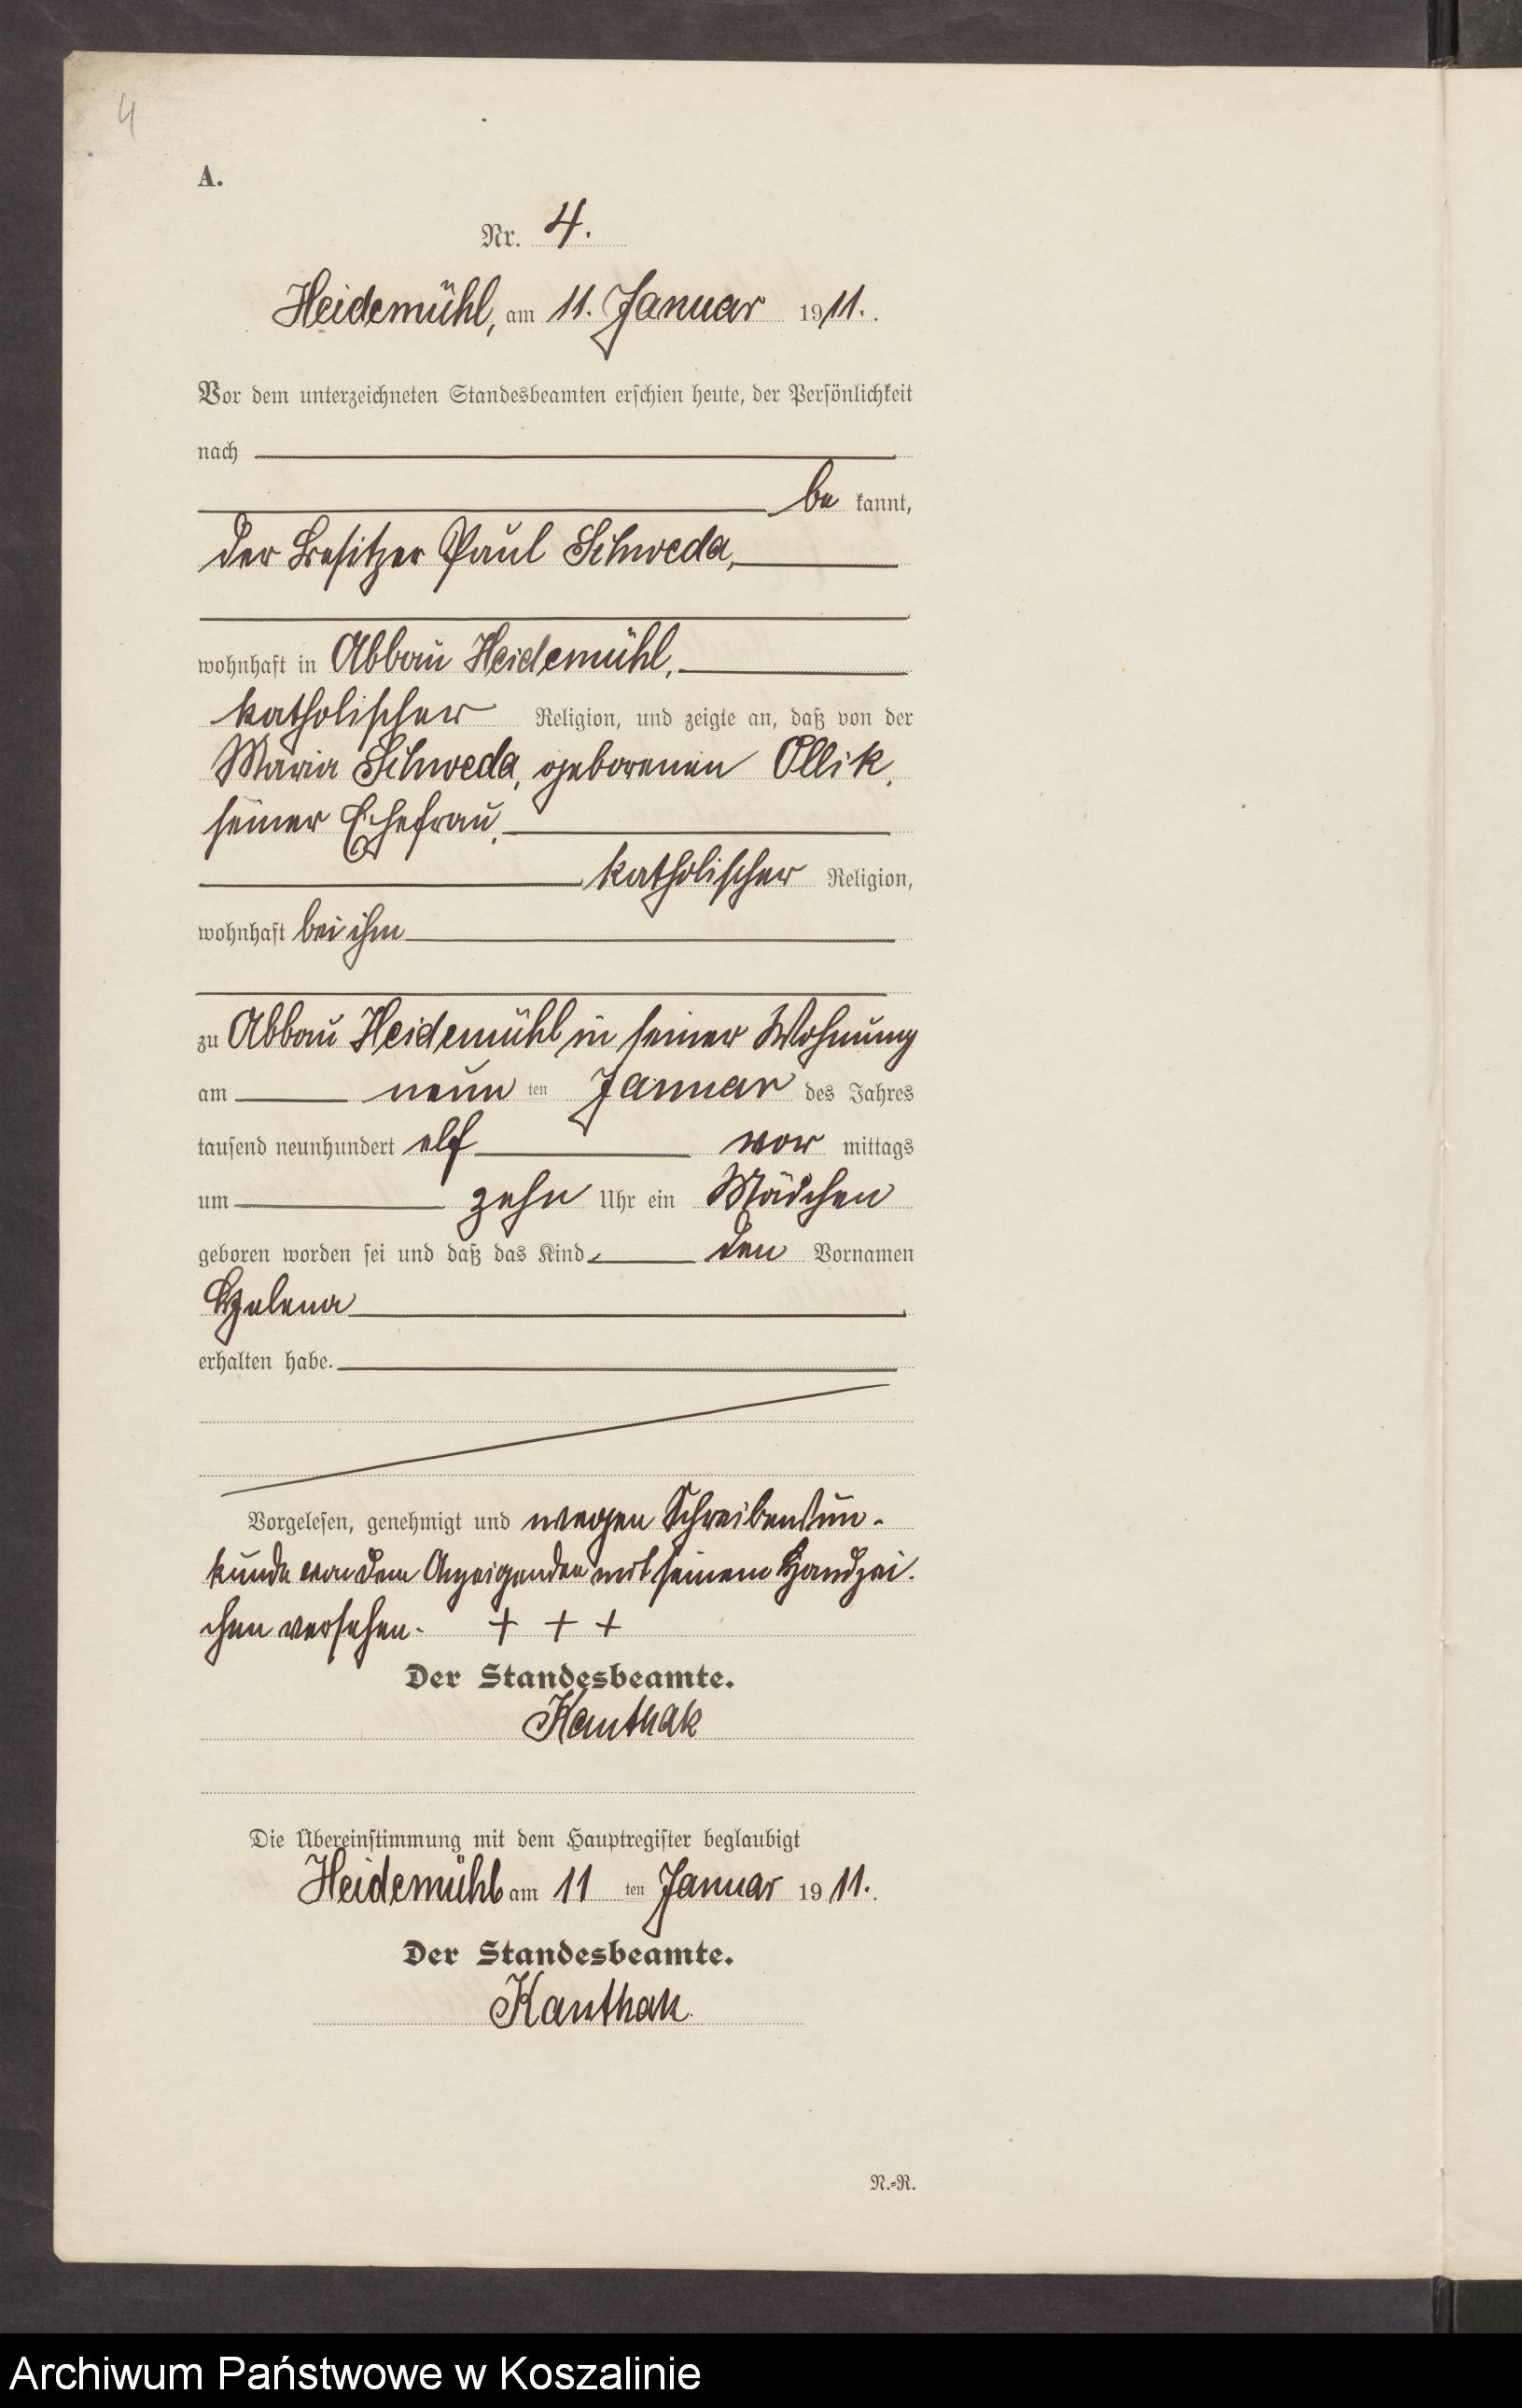 4
A.
Nr. 4.
Heidemühl, am 11. Januar 1911.
Vor dem unterzeichneten Standesbeamten erschien heute, der Persönlichkeit
nach
be kannt,
der Besitzer Paul Schweda,
wohnhaft in Abbau Heidemühl,
katholischer Religion, und zeigte an, daß von der
Maria Schweda, geborenen Ollik,
seiner Ehefrau,
katholischer Religion,
wohnhaft bei ihm
zu Abbau Heidemühl in seiner Wohnung
am neun ten Januar des Jahres
tausend neunhundert elf vor mittags
um zehn Uhr ein Mädchen
geboren worden sei und daß das Kind den Vornamen
Helena
erhalten habe.
Vorgelesen, genehmigt und wegen Schreibensun-
kunde von dem Anzeigenden mit seinem Handzei-
chen versehen. + + +
Der Standesbeamte.
Kanthak
Die Übereinstimmung mit dem Hauptregister beglaubigt
Heidemühl am 11 ten Januar 1911.
Der Standesbeamte.
Kanthak.
N.=R.
Archiwum Państwowe w Koszalinie